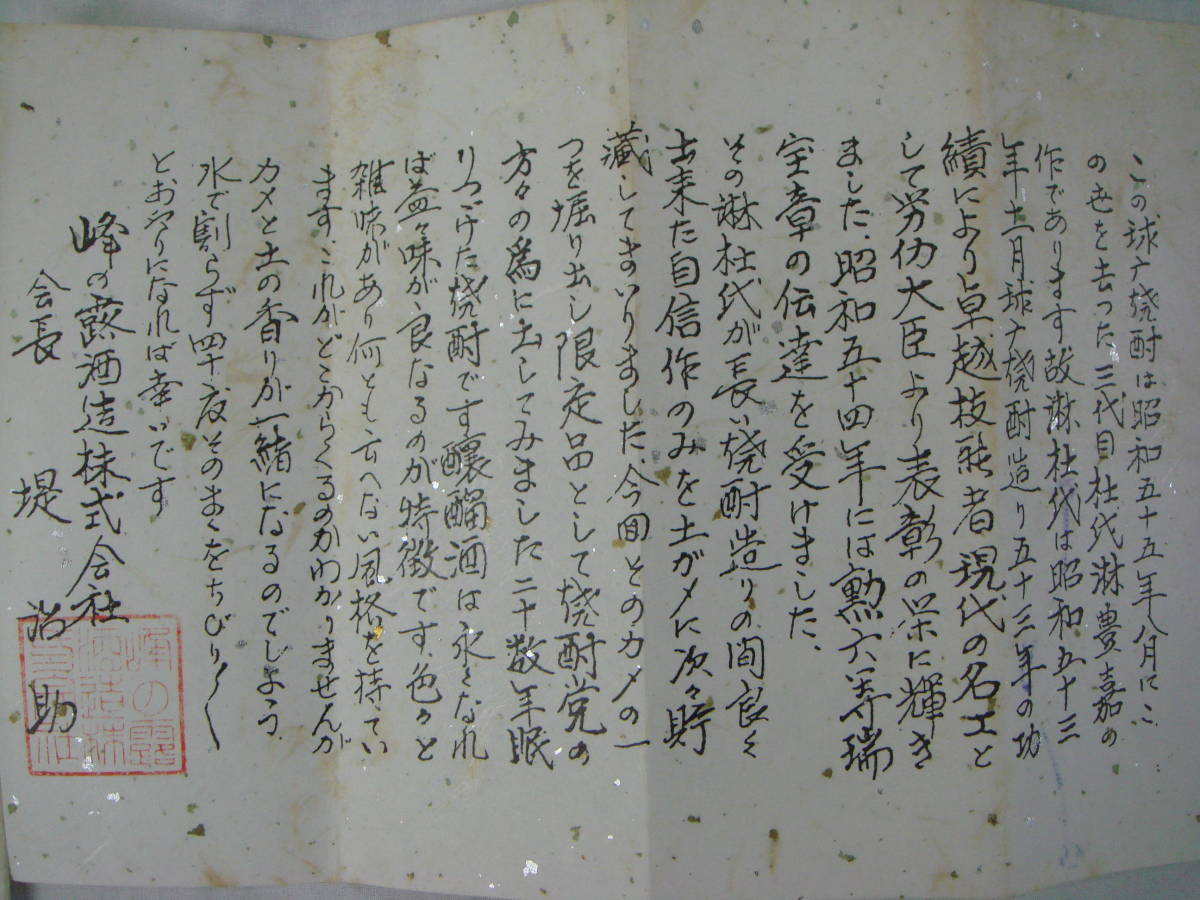 この球ナ焼酎は昭和五十五年八月にこ
の世を去った三代目杜氏淋豊嘉の
作であります。故淋杜氏は昭和五十三
年十一月球ナ焼酎造り五十三年の功
績により卓越技能者現代の名工と
して労仂大臣より表彰の栄に輝き
ました。昭和五十四年には勲六等瑞
宝章の伝達を受けました、
その淋杜氏が長い焼酎造りの間良く
出来た自信作のみを土ガメに次々貯
蔵してまいりました、今回そのカメの一
つを堀り出し限定品として焼酎党の
方々の為に出してみました二十数年眠
りつづけた焼酎です醸醞酒は永くなれ
ば益々味が良なるのが特徴です、色々と
雑味があり何とも云へない風格を持てい
ます、これがどこからくるのかわかりませんが
カメと土の香りが一緒になるのでしょう、
水で割らず四十度そのまゝをちびり〳〵
とおやりになれば幸いです
峰の露酒造株式会社
会長 堤 治助
峰の露酒造株式会社